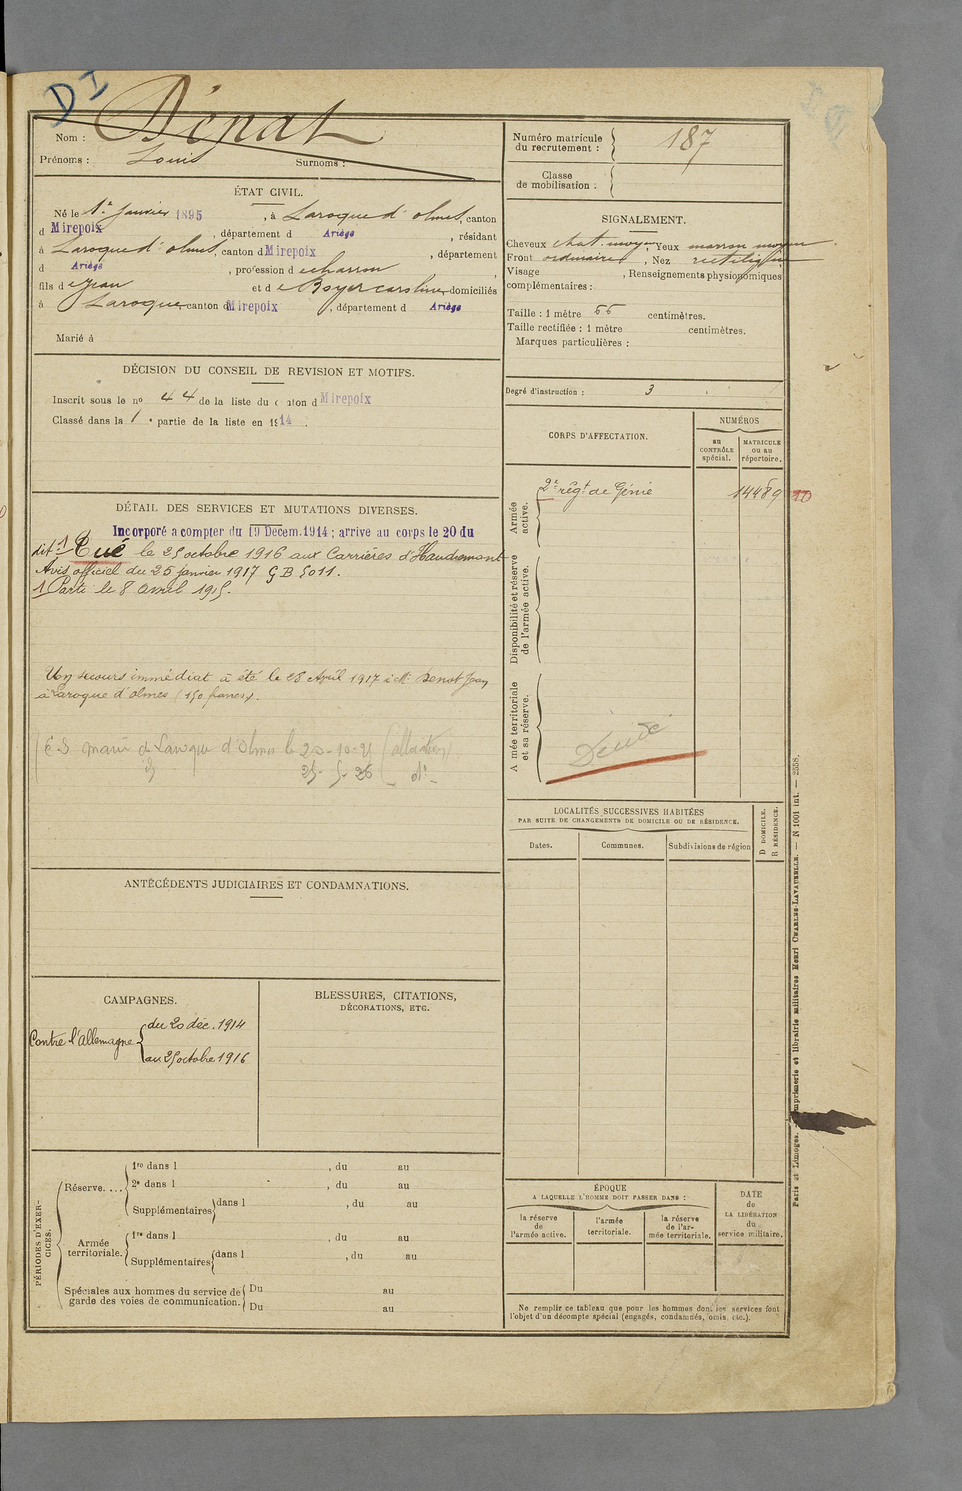 DI
Nom : Dénat
Prénoms : Louis Surnoms :
Numéro matricule du recrutement : 187
Classe de mobilisation :
ÉTAT CIVIL.
Né le 1er Janvier 1895, à Laroque d'olmes, canton
d Mirepoix, département d Ariège, résidant
à Laroque d'olmes, canton d Mirepoix, département
d Ariège, profession de charron,
fils de Jean et de Boyer caroline, domiciliés
à Laroque, canton d Mirepoix, département d Ariège
Marié à
SIGNALEMENT.
Cheveux chat. moyen, Yeux marron moyen
Front ordinaire, Nez rectiligne
Visage , Renseignements physionomiques
complémentaires :
Taille : 1 mètre 66 centimètres.
Taille rectifiée : 1 mètre centimètres.
Marques particulières :
Degré d'instruction : 3
DÉCISION DU CONSEIL DE REVISION ET MOTIFS.
Inscrit sous le no 44 de la liste du canton d Mirepoix
Classé dans la 1e partie de la liste en 1914.
CORPS D'AFFECTATION.
NUMÉROS
au CONTRÔLE spécial.
MATRICULE ou au répertoire.
Armée active.
2e régt de Génie 14489 10
Disponibilité et réserve de l'armée active.
Armée territoriale et sa réserve.
DÉTAIL DES SERVICES ET MUTATIONS DIVERSES.
Incorporé a compter du 19 Decem. 1914 ; arrive au corps le 20 du
dit 1 Tué le 25 octobre 1916 aux Carrières d'Haudromont
Avis officiel du 25 Janvier 1917 GB 5011.
1 Parti le 8 avril 1915.
Un secours immédiat a été le 28 Avril 1917 à M. Denat Jean
à Laroque d'olmes (150 francs).
LOCALITÉS SUCCESSIVES HABITÉES
PAR SUITE DE CHANGEMENTS DE DOMICILE OU DE RÉSIDENCE.
Dates.
Communes.
Subdivisions de région
D DOMICILE.
R RÉSIDENCE.
ANTÉCÉDENTS JUDICIAIRES ET CONDAMNATIONS.
CAMPAGNES.
Contre l'Allemagne
du 20 déc. 1914
au 25 octobre 1916
BLESSURES, CITATIONS,
DÉCORATIONS, ETC.
PÉRIODES D'EXERCICES.
Réserve....
1re dans l , du au
2e dans l , du au
Supplémentaires dans l , du au
Armée territoriale.
1re dans l , du au
Supplémentaires dans l , du au
Spéciales aux hommes du service de garde des voies de communication.
Du au
Du au
ÉPOQUE
A LAQUELLE L'HOMME DOIT PASSER DANS :
la réserve de l'armée active.
l'armée territoriale.
la réserve de l'armée territoriale.
DATE de LA LIBÉRATION du service militaire.
Ne remplir ce tableau que pour les hommes dont les services font
l'objet d'un décompte spécial (engagés, condamnés, omis, etc.).
Paris et Limoges. — Imprimerie et librairie militaires Henri CHARLES-LAVAUZELLE. — N 1001 int. — 2558.